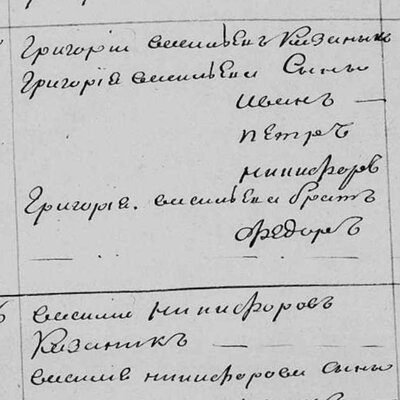 Григорій васильевъ Казаникъ
Григорія васильева Сыны
иванъ —
петръ
никифоръ
Григорія. васильева братъ
Федоръ
василій никифоровъ
Казаникъ —
василія никифорова сыны